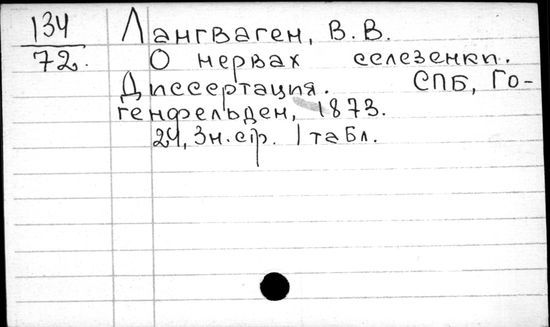 134 Лангваген, В. В.
72. О нервах селезенки.
Диссертация. СПБ, Го-
генфельден, 1873.
24, 3н.стр. 1 табл.